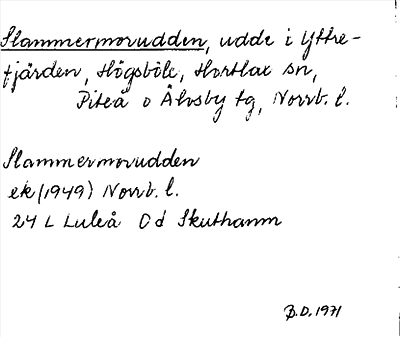 Slammermorudden, udde i Yttre-
fjärden, Högsböle, Hortlax sn,
Piteå o Älvsby tg, Norrb. l.
Slammermorudden
ek (1949) Norrb. l.
24 L Luleå 0 d Skuthamn
B.D. 1971